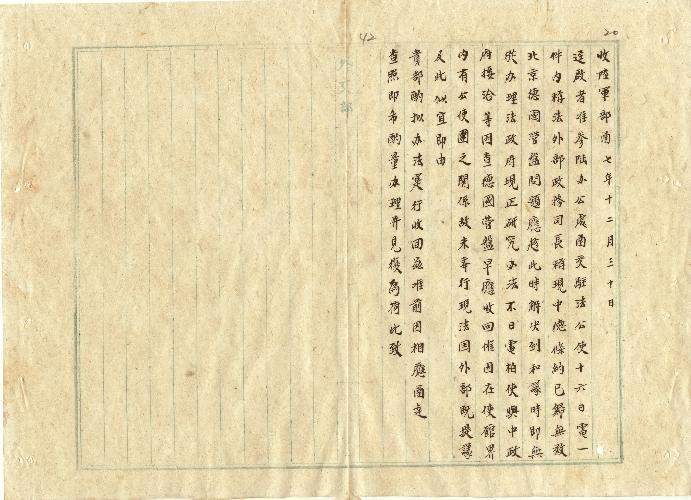 20
42
收陸軍部函七年十二月三十日
逕啟者准參陸办公處函交駐法公使十六日電一
件内稱法外部政務司長稱現中德條約已歸無效
北京德國營盤問題應趁此時解决到和議時即無
從办理法政府現正研究办法不日電柏使與中政
府接洽等因查德國營盤早應收回惟因在使館界
内有公使團之關係故未辜行現法国外部既提議
及此似宜即由
貴部酌拟办法寔行收回茲准前因相應函達
查照即希酌量办理并見復為荷此致
外交部